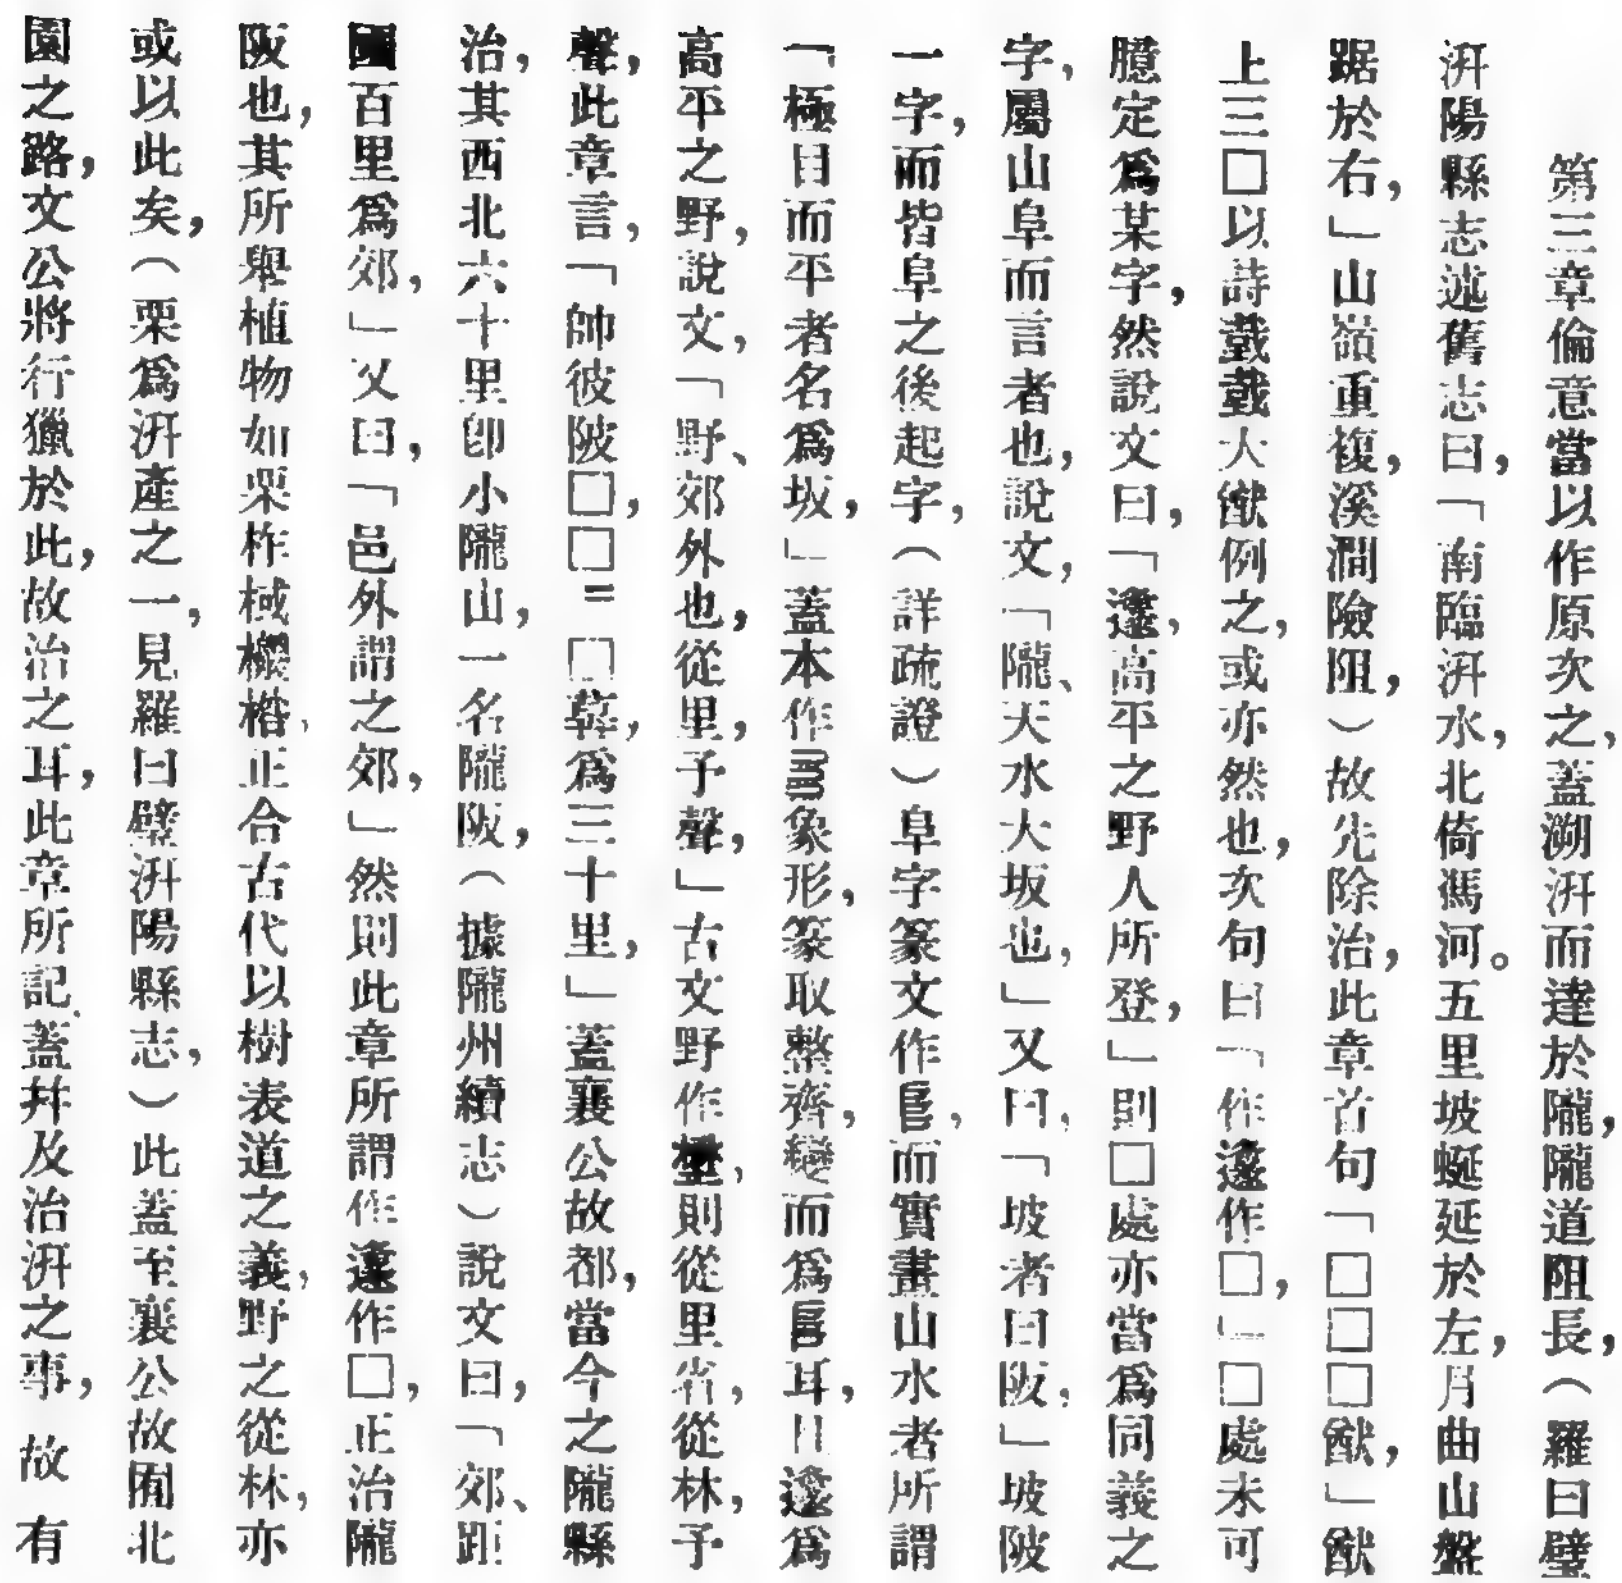 第三章倫意當以作原次之，蓋溯汧而達於隴，隴道阻長，（羅曰璧
汧陽縣志述舊志曰，「南臨汧水，北倚馮河。五里坡蜒延於左，月曲山盤
踞於右，」山嶺重複，溪澗險阻，）故先除治，此章首句「□□□猷，」猷
上三□以詩𢧜𢧜大猷例之，或亦然也，次句曰「作邍作□，」□處未可
臆定爲某字，然說文曰，「邍，高平之野人所登，」則□處亦當爲同義之
字，屬山阜而言者也，說文，「隴、天水大坂也，」又曰，「坡者曰阪，」坡陂
一字，而皆阜之後起字，（詳疏證）阜字篆文作𨸏，而實畫山水者所謂
「極目而平者名爲坂，」蓋本作象形，篆取整齊，變而爲𨸏耳，且邍爲
高平之野，說文，「野、郊外也，從里，予聲，」古文野作壄，則從里省，從林，予
聲，此章言，「帥彼陂□，□＝□𦾔，爲三十里，」蓋襄公故都，當今之隴縣
治，其西北六十里卽小隴山，一名隴阪，（據隴州續志）說文曰，「郊、距
國百里爲郊，」又曰，「邑外謂之郊，」然則此章所謂作邍作□，正治隴
阪也，其所舉植物如栗柞棫櫻楛，正合古代以樹表道之義，野之從林，亦
或以此矣，（栗爲汧產之一，見羅曰璧汧陽縣志，）此蓋至襄公故囿北
園之路，文公將行獵於此，故治之耳，此章所記蓋幷及治汧之事，故有